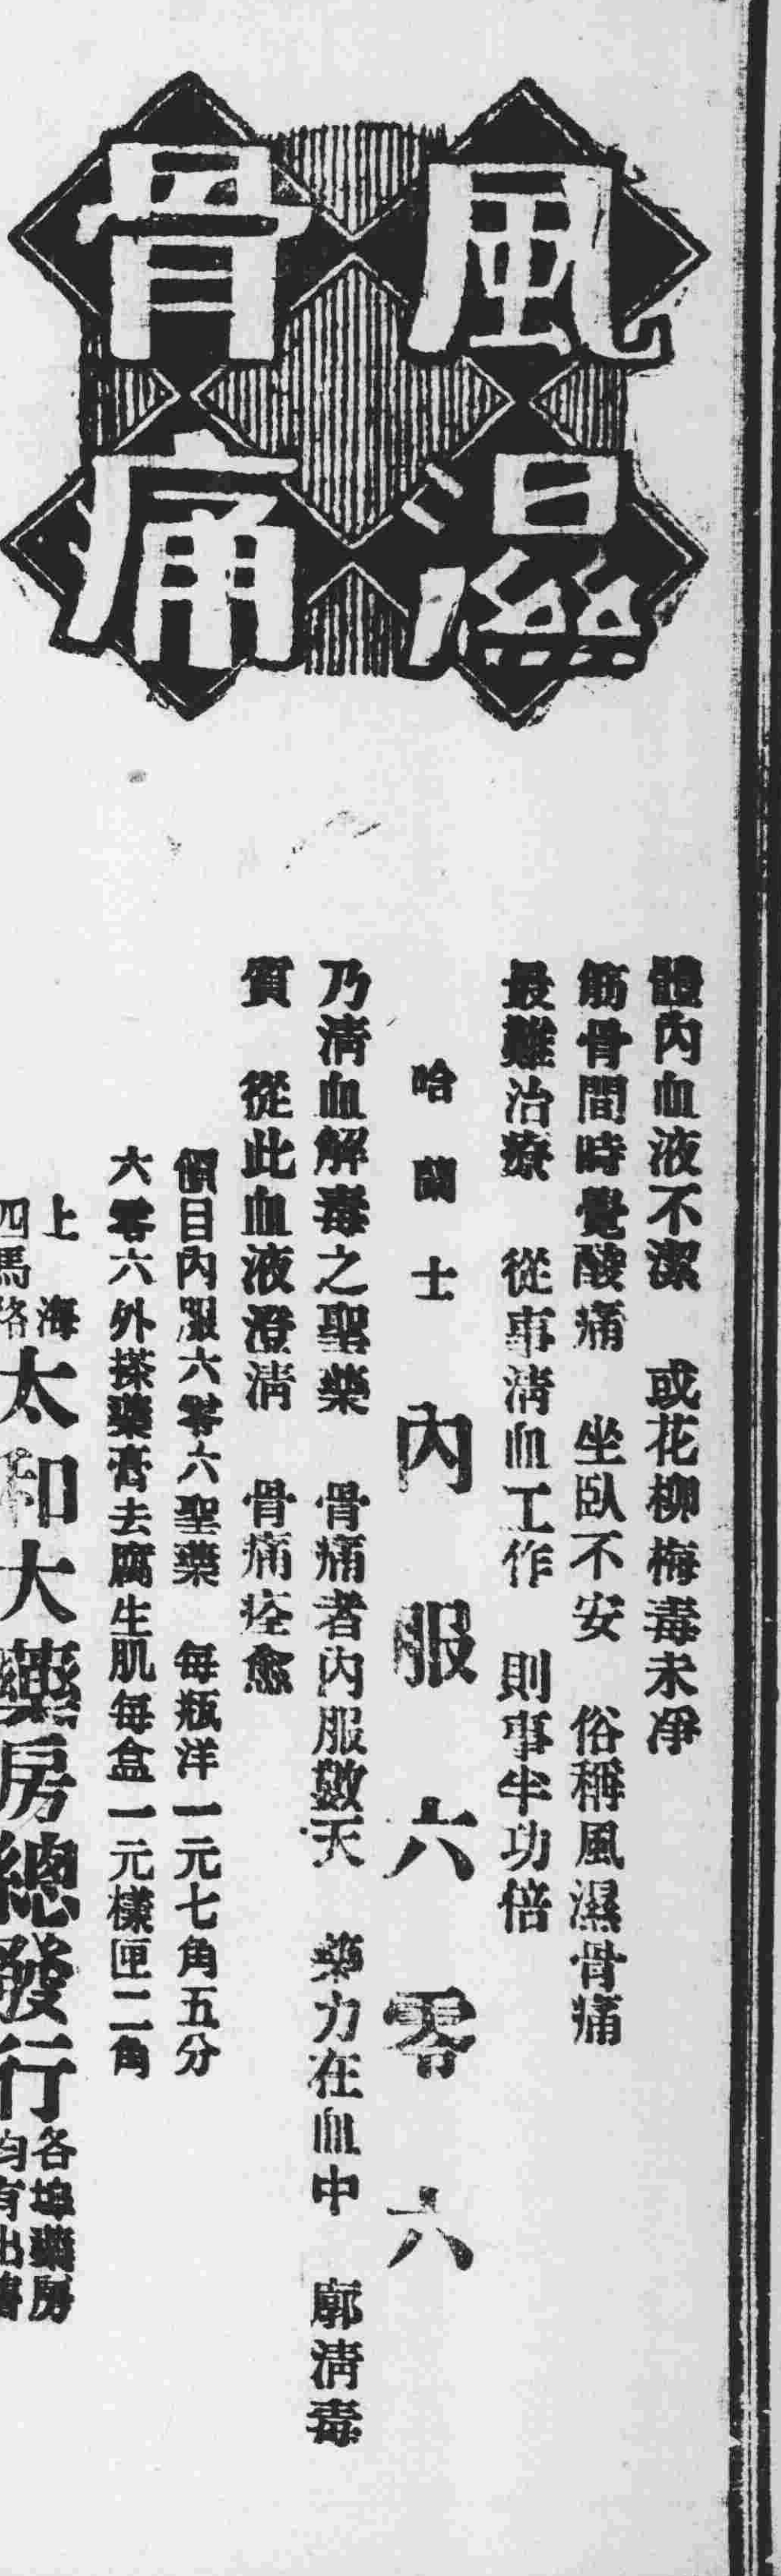 風濕
骨痛
體內血液不潔　或花柳梅毒未淨
筋骨間時覺酸痛　坐臥不安　俗稱風濕骨痛
最難治療　從事淸血工作　則事半功倍
哈蘭士內服六零六
乃淸血解毒之聖藥　骨痛者內服數天　藥力在血中　廓淸毒
質　從此血液澄淸　骨痛痊愈
價目內服六零六聖藥　每瓶洋一元七角五分
六零六外搽藥膏去腐生肌每盒一元樣匣二角
上海
四馬路
太和大藥房總發行
各埠藥房
均有出售